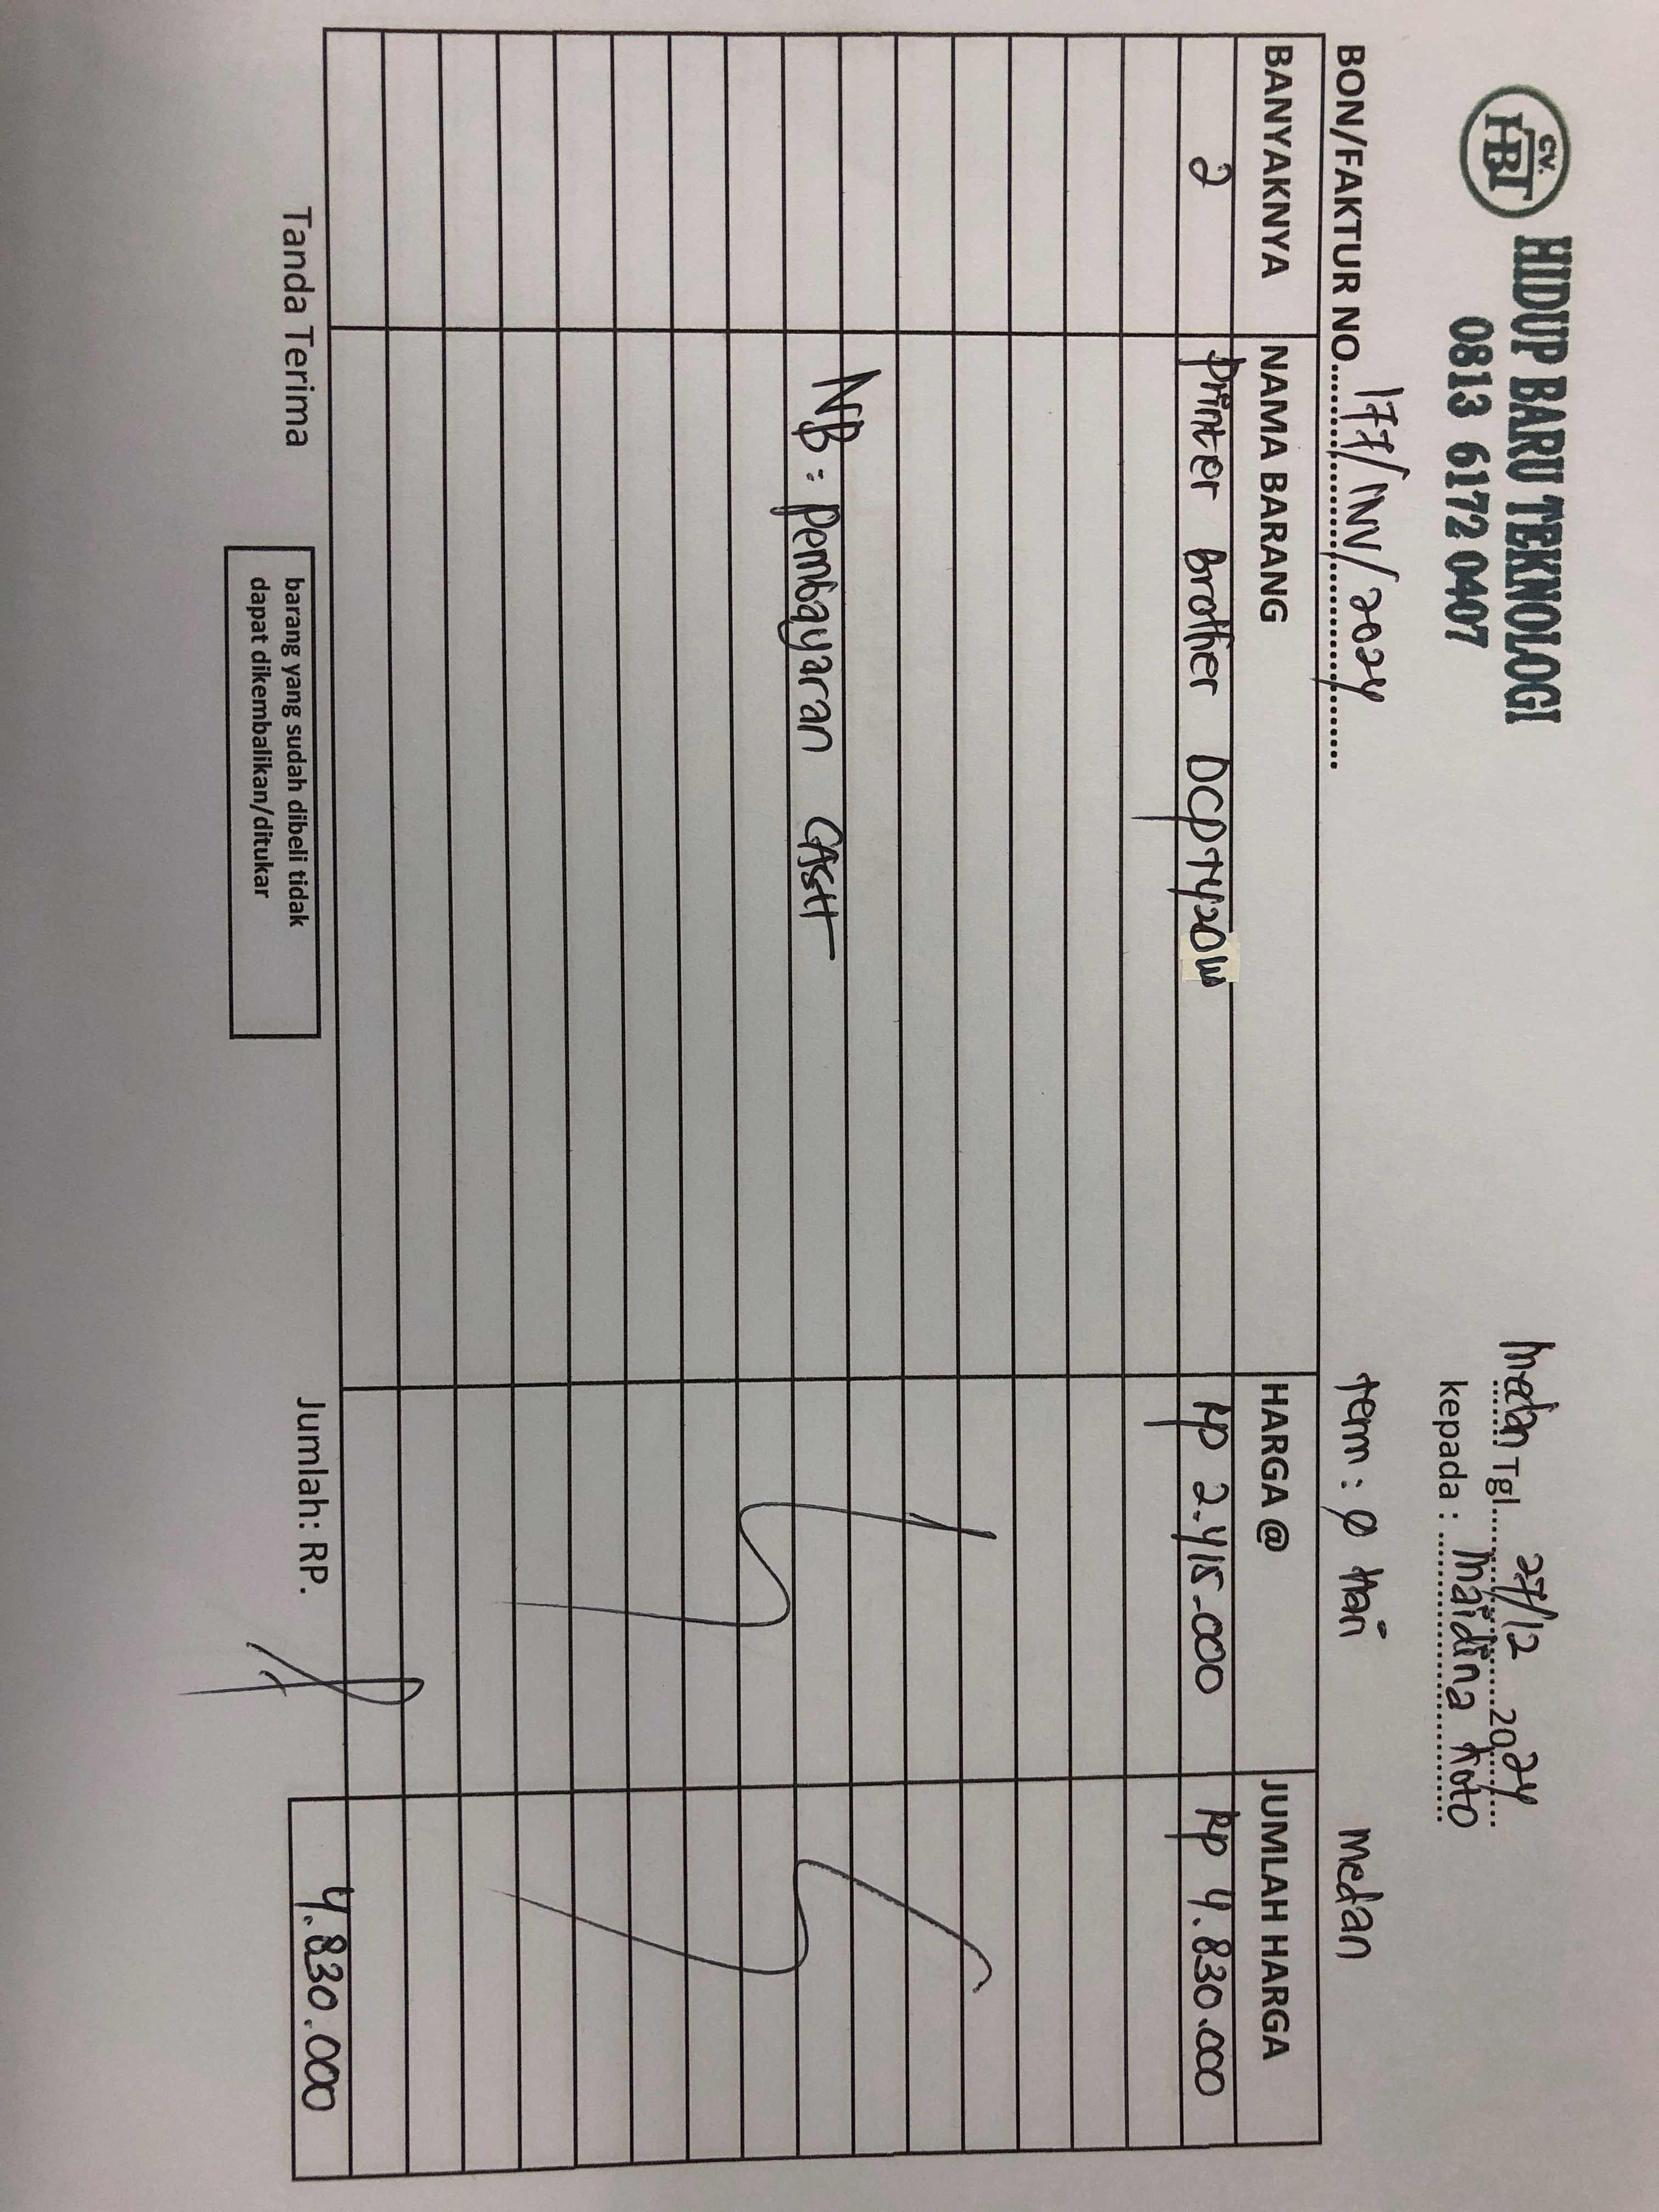 CV. HBT
HIDUP BARU TEKNOLOGI
0813 6172 0407
Medan Tgl. 27/12 2024
kepada : Maidina Foto
BON/FAKTUR NO. 177/INV/2024 term : 0 Hari Medan
BANYAKNYA NAMA BARANG HARGA @ JUMLAH HARGA
2 Printer Brother DCPT420W Rp 2.415.000 Rp 4.830.000
NB : Pembayaran CASH
Tanda Terima Jumlah: RP. 4.830.000
barang yang sudah dibeli tidak
dapat dikembalikan/ditukar